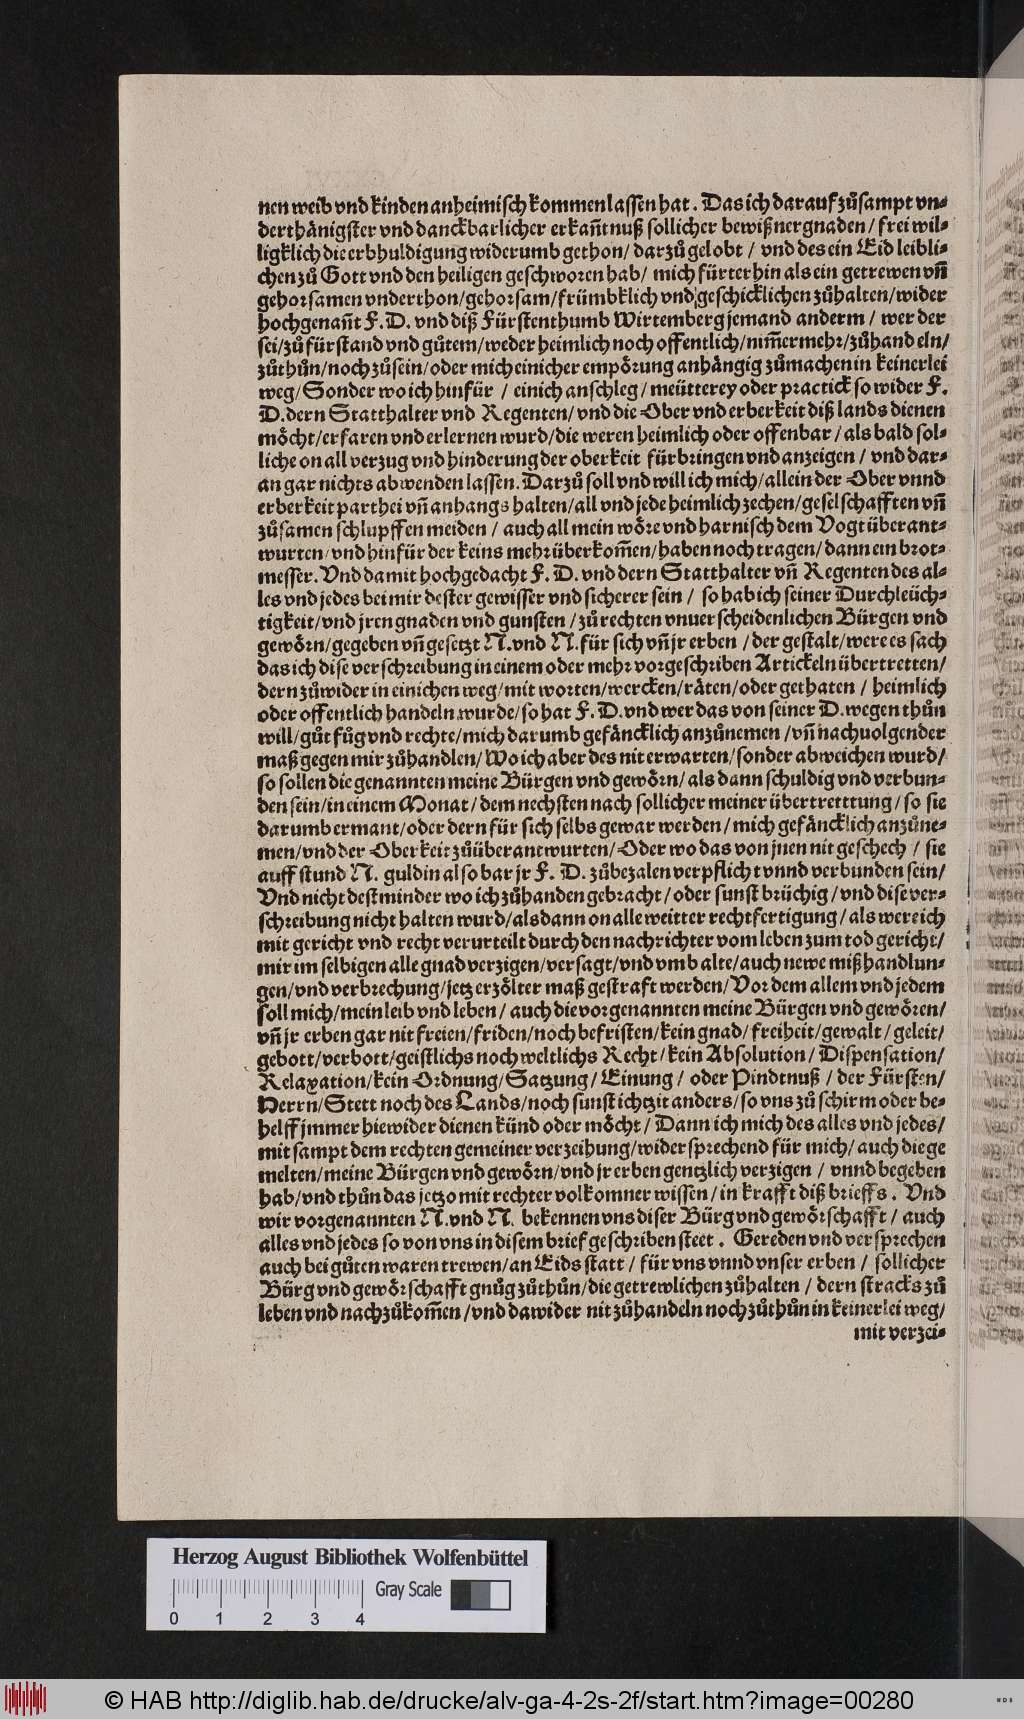 nen weib vnd kinden anheimisch kommen lassen hat. Das ich darauf zůsampt vn⸗
derthänigster vnd danckbarlicher erkañtnuß sollicher bewißner gnaden/ frei wil⸗
ligklich die erbhuldigung widerumb gethon/ darzů gelobt / vnd des ein Eid leibli⸗
chen zů Gott vnd den heiligen geschworen hab/ mich fürterhin als ein getrewen vñ
gehorsamen vnderthon/gehorsam/frümbklich vnd geschicklichen zůhalten/wider
hochgenañt F. D. vnd diß Fürstenthumb Wirtemberg jemand anderm / wer der
sei/zů fürstand vnd gůtem/weder heimlich noch offentlich/nim̃ermehr/zůhandeln/
zůthůn/noch zůsein/oder mich einicher empörung anhängig zůmachen in keinerlei
weg/ Sonder wo ich hinfür / einich anschleg / meütterey oder practick so wider F.
D. dern Statthalter vnd Regenten/ vnd die Ober vnd erberkeit diß lands dienen
möcht/erfaren vnd erlernen wurd/die weren heimlich oder offenbar / als bald sol⸗
liche on all verzug vnd hinderung der oberkeit fürbringen vnd anzeigen / vnd dar⸗
an gar nichts abwenden lassen. Darzů soll vnd will ich mich/allein der Ober vnnd
erberkeit parthei vñ anhangs halten/all vnd jede heimlich zechen/geselschafften vñ
zůsamen schlupffen meiden / auch all mein wöre vnd harnisch dem Vogt überant⸗
wurten/ vnd hinfür der keins mehr überkom̃en/haben noch tragen/dann ein brot⸗
messer. Vnd damit hochgedacht F. D. vnd dern Statthalter vñ Regenten des al⸗
les vnd jedes bei mir dester gewisser vnd sicherer sein / so hab ich seiner Durchleüch⸗
tigkeit/vnd jren gnaden vnd gunsten / zů rechten vnuerscheidenlichen Bürgen vnd
gewörn/gegeben vñ gesetzt N. vnd N. für sich vñ jr erben / der gestalt/were es sach
das ich dise verschreibung in einem oder mehr vorgeschriben Artickeln übertretten/
dern zůwider in einichen weg/mit worten/wercken/räten/oder gethaten / heimlich
oder offentlich handeln wurde/so hat F. D. vnd wer das von seiner D. wegen thůn
will/gůt fůg vnd rechte/mich darumb gefäncklich anzůnemen /vñ nachuolgender
maß gegen mir zůhandlen/ Wo ich aber des nit erwarten/sonder abweichen wurd/
so sollen die genannten meine Bürgen vnd gewörn/ als dann schuldig vnd verbun⸗
den sein/in einem Monat / dem nechsten nach sollicher meiner übertretttung/ so sie
darumb ermant/oder dern für sich selbs gewar werden/ mich gefäncklich anzůne⸗
men/vnd der Oberkeit zůüberantwurten/Oder wo das von jnen nit geschech / sie
auff stund N. guldin also bar jr F. D. zůbezalen verpflicht vnnd verbunden sein/
Vnd nicht destminder wo ich zůhanden gebracht/oder sunst brüchig/vnd dise ver⸗
schreibung nicht halten wurd/als dann on alle weitter rechtfertigung/als were ich
mit gericht vnd recht verurteilt durch den nachrichter vom leben zum tod gericht/
mir im selbigen alle gnad verzigen/versagt/vnd vmb alte/auch newe mißhandlun⸗
gen/vnd verbrechung/jetz erzölter maß gestraft werden/Vor dem allem vnd jedem
soll mich/mein leib vnd leben / auch die vorgenannten meine Bürgen vnd gewören/
vñ jr erben gar nit freien/friden/noch befristen/kein gnad/freiheit/gewalt/geleit/
gebott/verbott/geistlichs noch weltlichs Recht/kein Absolution/ Dispensation/
Relaxation/kein Ordnung/Satzung/ Einung / oder Pindtnuß / der Fürsten/
Herrn/Stett noch des Lands/noch sunst ichtzit anders/so vns zů schirm oder be⸗
helff jmmer hiewider dienen künd oder möcht/ Dann ich mich des alles vnd jedes/
mit sampt dem rechten gemeiner verzeihung/widersprechend für mich/ auch die ge
melten/meine Bürgen vnd gewörn/vnd jr erben gentzlich verzigen / vnnd begeben
hab/vnd thůn das jetzo mit rechter volkomner wissen/in krafft diß brieffs. Vnd
wir vorgenannten N. vnd N. bekennen vns diser Bürg vnd gewörschafft / auch
alles vnd jedes so von vns in disem brief geschriben steet. Gereden vnd versprechen
auch bei gůten waren trewen/an Eids statt / für vns vnnd vnser erben / sollicher
Bürg vnd gewörschafft gnůg zůthůn/die getrewlichen zůhalten / dern stracks zů
leben vnd nachzůkom̃en /vnd dawider nit zůhandeln noch zůthůn in keinerlei weg/
mit verzei⸗
Herzog August Bibliothek Wolfenbüttel
Gray Scale
0 1 2 3 4
© HAB http://diglib.hab.de/drucke/alv-ga-4-2s-2f/start.htm?image=00280